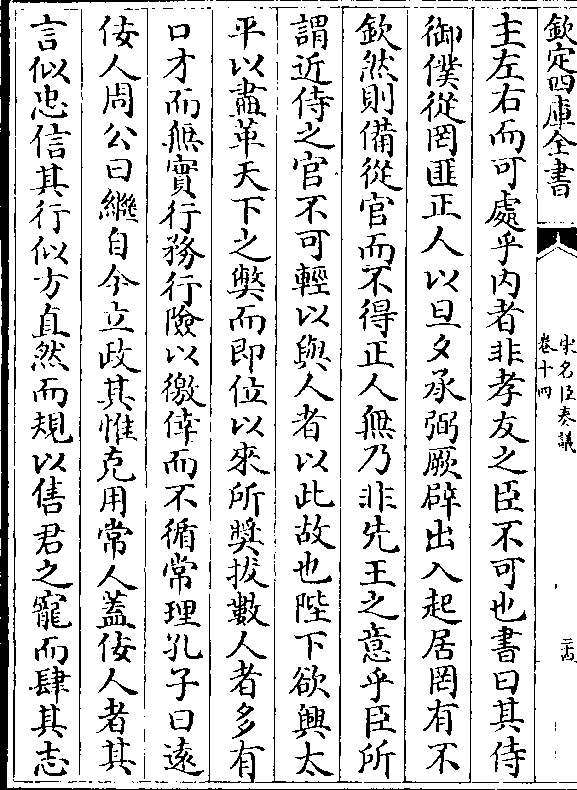 欽定四庫全書
宋名臣奏議
卷十四
主左右而可處乎内者非孝友之臣不可也書曰其侍
御僕從罔匪正人以旦夕承弼厥辟出入起居罔有不
欽然則備從官而不得正人無乃非先王之意乎臣所
謂近侍之官不可輕以與人者以此故也陛下欲興太
平以盡革天下之獘而即位以來所奬拔數人者多有
口才而無實行務行險以徼倖而不循常理孔子曰遠
佞人周公曰繼自今立政其惟克用常人蓋佞人者其
言似忠信其行似方直然而規以售君之寵而肆其志